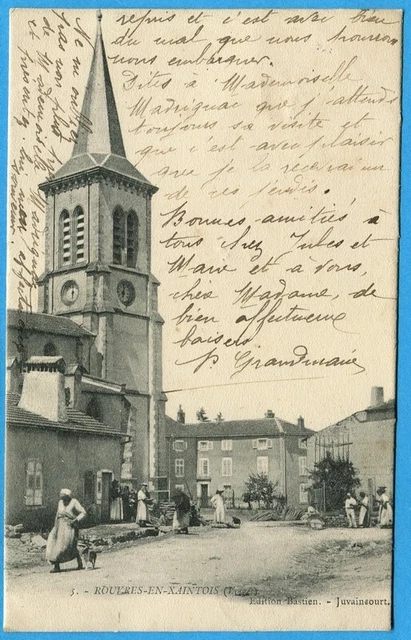 repris et c'est avec bien
du mal que nous pourrons
nous embarquer.
Dites à Mademoiselle
Madrignac que j'attends
toujours sa visite et
que c'est avec plaisir
que je la recevrai un
de ces jeudis.
Bonnes amitiés à
tous chez Jules et
Marie et à vous,
chère Madame, de
bien affectueux
baisers
P Grandmaire
Ne m'oubliez
pas non plus
de Mademoiselle Madrignac
et
5. - ROUVRES-EN-XAINTOIS (Vosges)
Edition Bastien. - Juvaincourt.